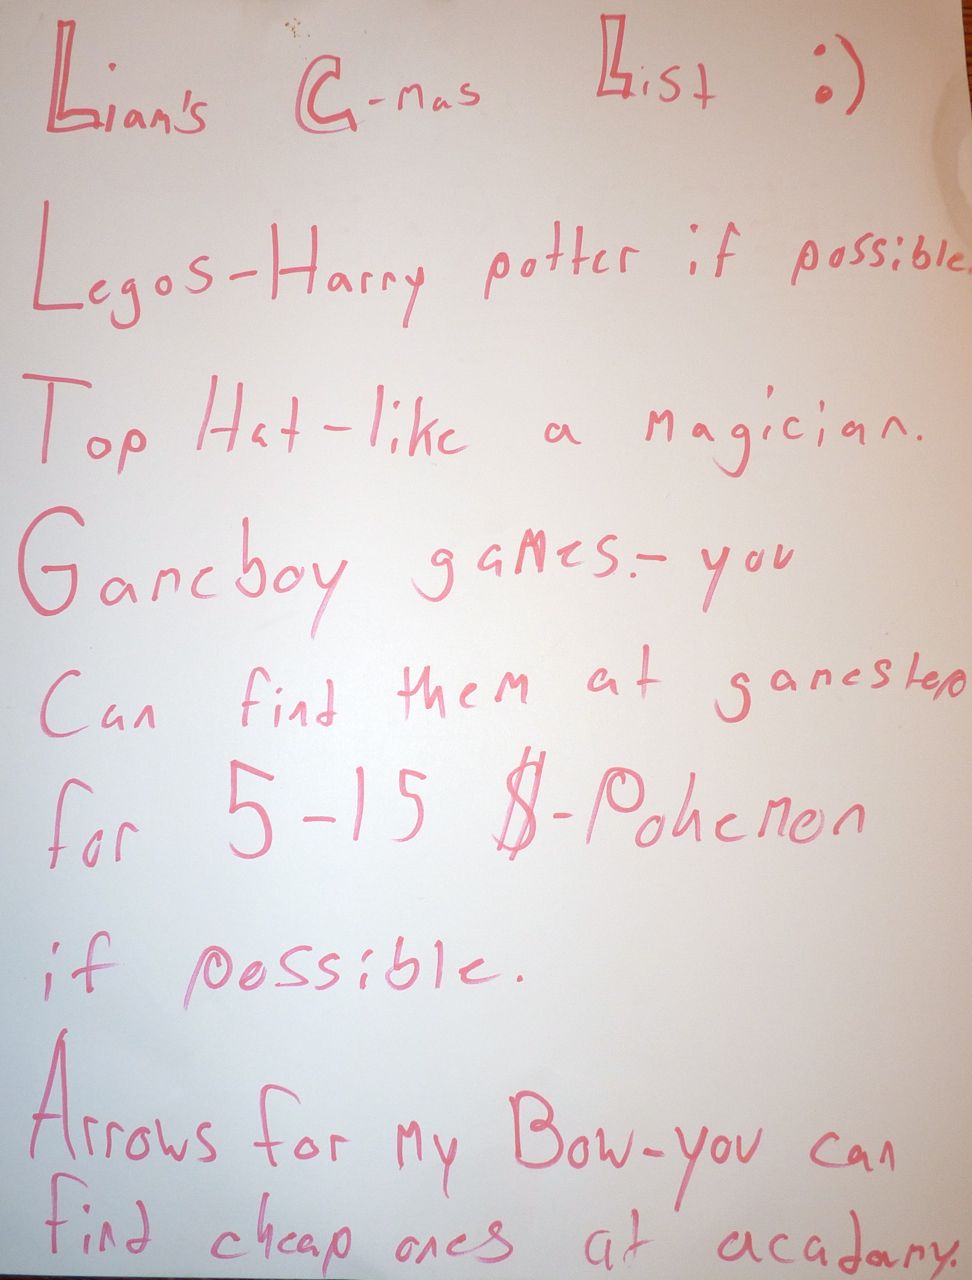 Liam's C-mas List :)
Legos-Harry potter if possible.
Top Hat-like a magician.
Gameboy games.- you
Can find them at gamestop
for 5-15 $-Pokemon
if possible.
Arrows for my Bow-you can
find cheap ones at acadamy.